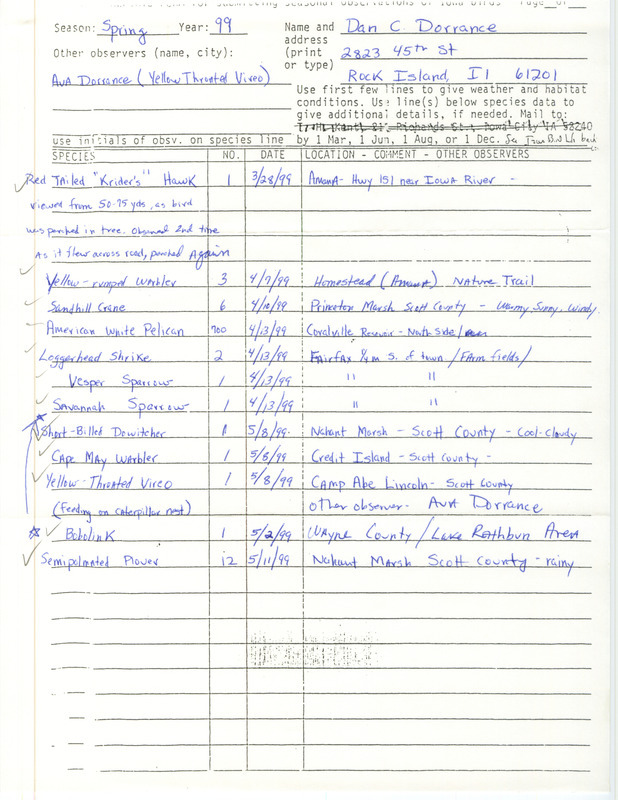 Season: Spring Year: 99 Name and Dan C Dorrance
address
Other observers (name, city): (print 2823 45th St
or type)
AvA Dorrance (Yellow Throated Vireo) Rock Island, Il 61201
Use first few lines to give weather and habitat
conditions. Use line(s) below species data to
give additional details, if needed. Mail to:
use initials of obsv. on species line by 1 Mar, 1 Jun, 1 Aug, or 1 Dec.
SPECIES NO. DATE LOCATION - COMMENT - OTHER OBSERVERS
Red Tailed "Krider's" Hawk 1 3/28/99 AmanA- Hwy 151 near Iowa River -
viewed from 50-75 yds, as bird
was perched in tree. Observed 2nd time
As it flew across road, perched Again
Yellow-rumped Warbler 3 4/7/99 Homestead (Amana) Nature Trail
Sandhill Crane 6 4/10/99 Princeton Marsh Scott County - Warmy, Sunny, Windy.
American White Pelican 700 4/13/99 Coralville Resevoir - North Side/
Loggerhead Shrike 2 4/13/99 FAirfax 1/4 m S. of town / FArm fields/
Vesper Sparrow 1 4/13/99 " "
Savannah Sparrow 1 4/13/99 " "
Short-Billed Dowitcher 5/8/99 Nahant Marsh - Scott County - Cool-cloudy
CApe MAy WArbler 1 5/8/99 Credit Island - Scott County -
Yellow-Throated Vireo 1 5/8/99 CAmp Abe Lincoln- Scott County
(Feeding on caterpillar nest) other observer- AvA Dorrance
Bobolink 1 5/2/99 WAyne County / Lake Rathbun Area
Semipalmated Plover 12 5/11/99 Nahant Marsh Scott County - rainy